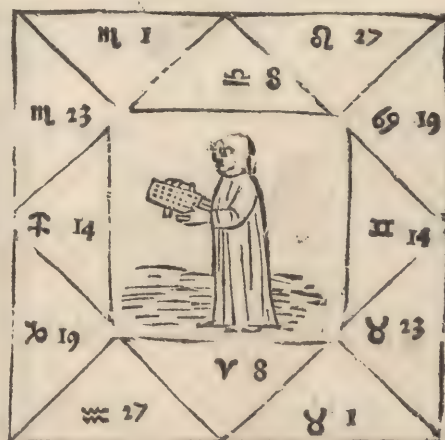 ♏ 1 ♌ 27
♎ 8
♏ 23 ♋ 19
♐ 14 ♊ 14
♑ 19 ♉ 23
♈ 8
♒ 27 ♉ 1